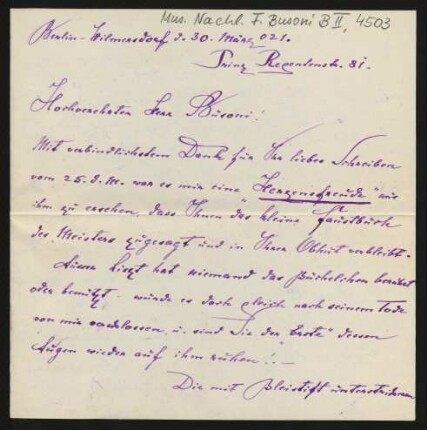 Mus. Nachl. F. Busoni B II, 4503
Berlin-Wilmersdorf d. 30. März 021.
Prinz Regentenstr. 81.
Hochverehrter Herr Busoni!
Mit verbindlichstem Dank für Ihr liebes Schreiben
vom 25. d. M. war es mir eine "Herzensfreude" aus
ihm zu ersehen, dass Ihnen das kleine Faustbuch
des Meisters zugesagt und in Ihrer Obhut verbleibt.
Ausser Liszt hat niemand das Büchelchen berührt
oder benützt - wurde es doch gleich nach seinem Tode
von mir u. sind Sie der "Erste" dessen
Augen wieder auf ihm ruhen! -
Die mit Bleistift unterstrichenen